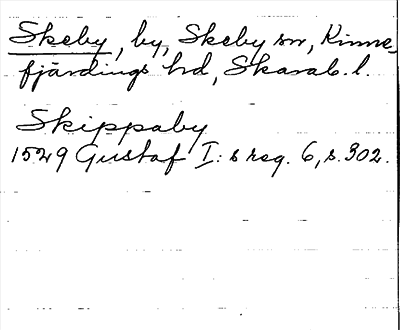 Skeby, by, Skeby sn, Kinne-
fjärdings hd, Skarab. l.
Skippaby
1529 Gustaf I:s reg. 6, s. 302.